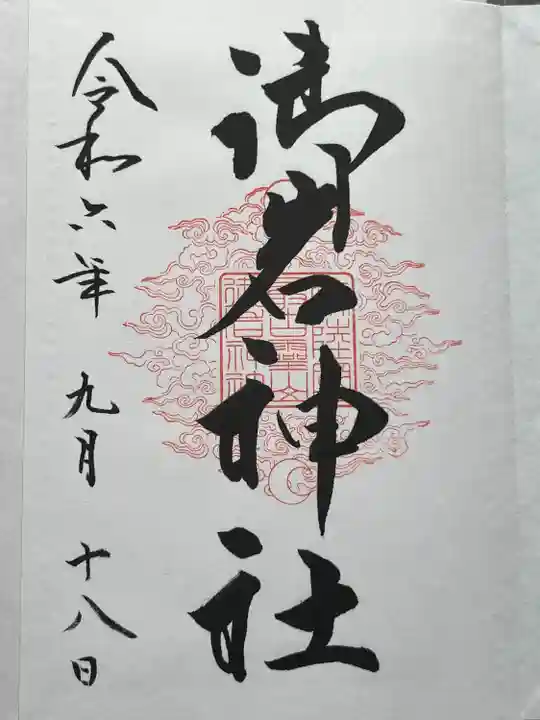 御岩神社
令和六年 九月 十八日